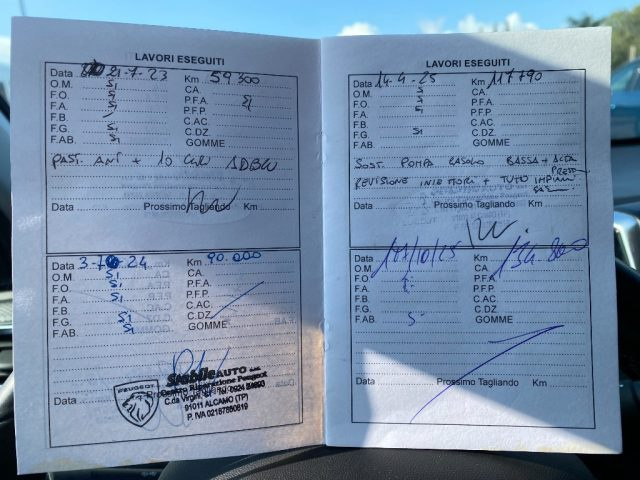 LAVORI ESEGUITI
Data 21-7-23 Km 59300
O.M. SI CA.
F.O. SI P.F.A. SI
F.A. SI P.F.P
F.B. C.AC.
F.G. SI C.DZ.
F.AB. SI GOMME
PAST. ANT + 10 ADBLU
Data Prossimo Tagliando Km
Data 3-7-24 Km 90.000
O.M. SI CA.
F.O. SI P.F.A.
F.A. SI P.F.P.
F.B. C.AC.
F.G. SI C.DZ.
F.AB. SI GOMME
StabileAUTO
Centro Riparazione Peugeot
C.da Virgini, Tel. 0924
Data
91011 ALCAMO (TP)
P. IVA 02187850819
PEUGEOT
LAVORI ESEGUITI
Data 14-4-25 Km 117790
O.M. SI CA.
F.O. SI P.F.A.
F.A. SI P.F.P
F.B. C.AC.
F.G. SI C.DZ.
F.AB. GOMME
SOST. POMPA GASOLIO BASSA + ALTA
PRESS
REVISIONE INIETTORI + TUTTO IMPIANTO
Data Prossimo Tagliando Km
Data 17/10/25 Km 134.800
O.M. CA.
F.O. P.F.A.
F.A. P.F.P.
F.B. C.AC.
F.G. C.DZ.
F.AB. GOMME
Data Prossimo Tagliando Km